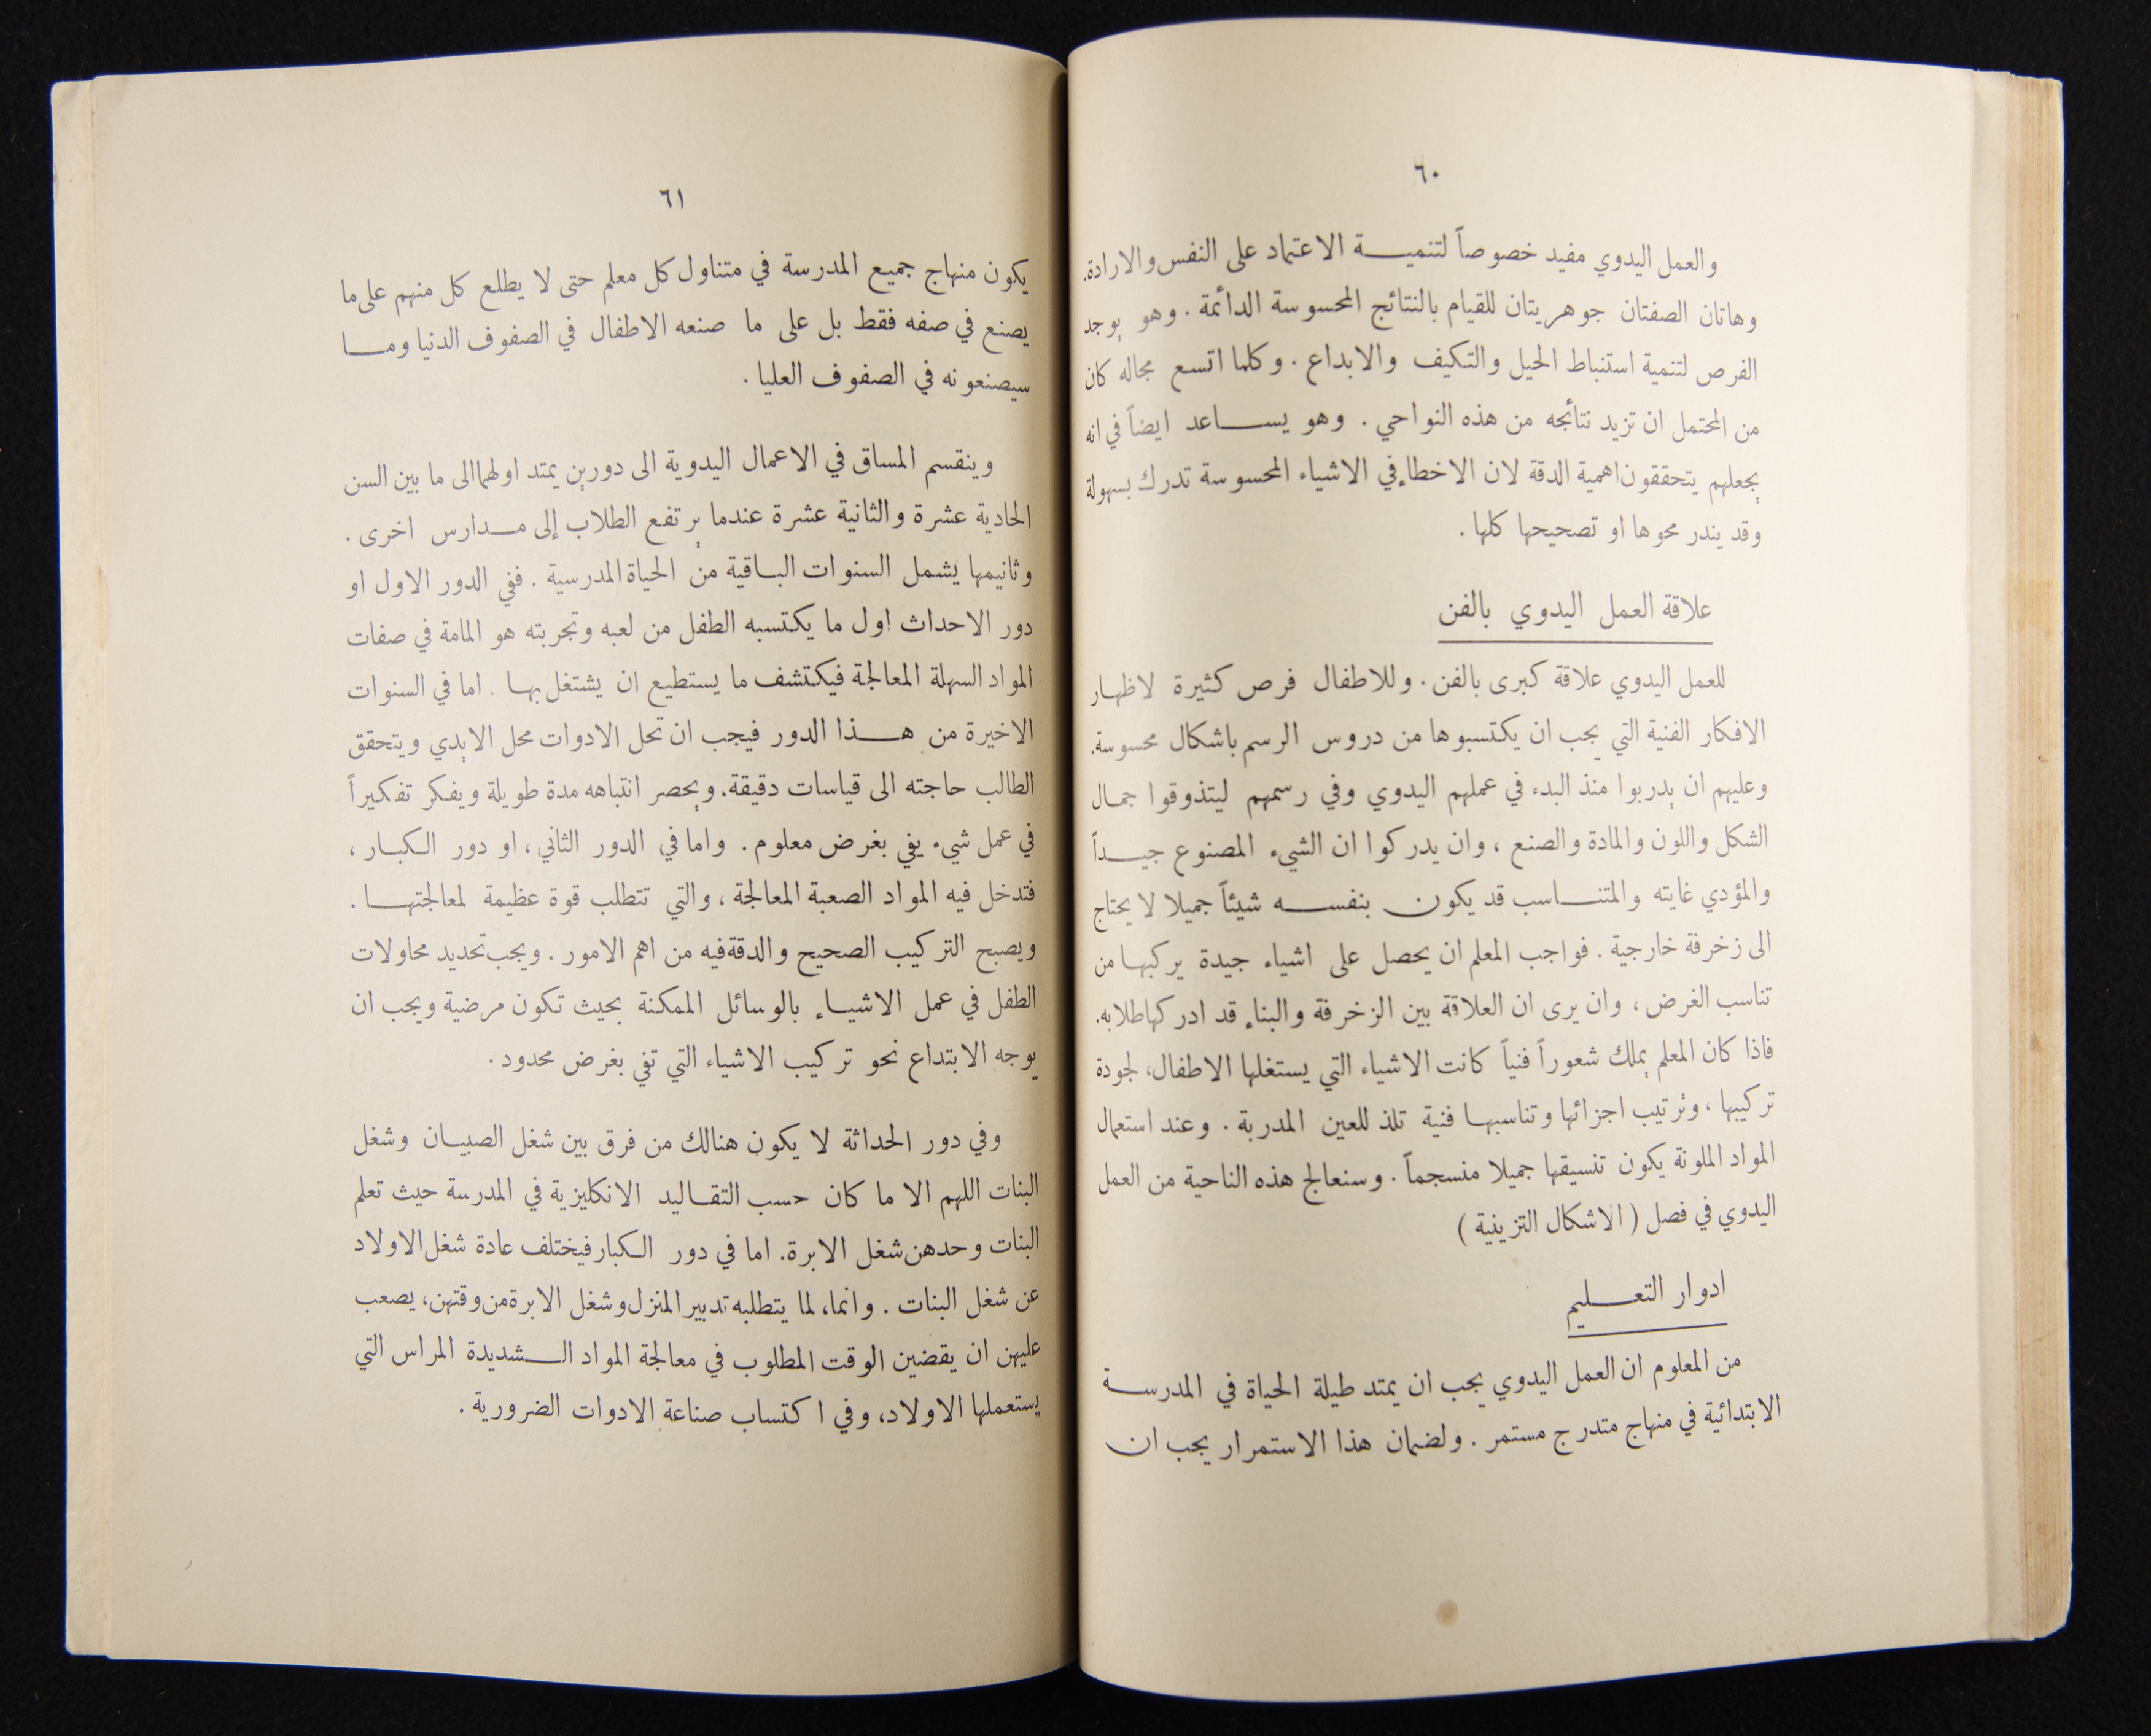 ٦٠
والعمل اليدوي مفيد خصوصاً لتنميـــة الاعتماد على النفس والارادة.
وهاتان الصفتان جوهريتان للقيام بالنتائج المحسوسة الدائمة . وهو يوجد
الفرص لتنمية استنباط الحيل والتكيف والابداع . وكلما اتسع مجاله كان
من المحتمل ان تزيد نتائجه من هذه النواحي . وهو يســـاعد ايضاً في انه
يجعلهم يتحققون اهمية الدقة لان الاخطاء في الاشياء المحسوسة تدرك بسهولة
وقد يندر محوها او تصحيحها كلها .
علاقة العمل اليدوي بالفن
للعمل اليدوي علاقة كبرى بالفن . وللاطفال فرص كثيرة لاظهار
الافكار الفنية التي يجب ان يكتسبوها من دروس الرسم باشكال محسوسة.
وعليهم ان يدربوا منذ البدء في عملهم اليدوي وفي رسمهم ليتذوقوا جمال
الشكل واللون والمادة والصنع ، وان يدركوا ان الشيء المصنوع جيـــداً
والمؤدي غايته والمتنـــاسب قد يكون بنفســـه شيئاً جميلا لا يحتاج
الى زخرفة خارجية . فواجب المعلم ان يحصل على اشياء جيدة يركبها من
تناسب الغرض ، وان يرى ان العلاقة بين الزخرفة والبناء قد ادركها طلابه.
فاذا كان المعلم يملك شعوراً فنياً كانت الاشياء التي يستغلها الاطفال، لجودة
تركيبها ، وترتيب اجزائها وتناسبها فنية تلذ للعين المدربة . وعند استعمال
المواد الملونة يكون تنسيقها جميلا منسجماً . وسنعالج هذه الناحية من العمل
اليدوي في فصل ( الاشكال التزينية )
ادوار التعـــليم
من المعلوم ان العمل اليدوي يجب ان يمتد طيلة الحياة في المدرســـة
الابتدائية في منهاج متدرج مستمر . ولضمان هذا الاستمرار يجب ان
٦١
يكون منهاج جميع المدرسة في متناول كل معلم حتى لا يطلع كل منهم على ما
يصنع في صفه فقط بل على ما صنعه الاطفال في الصفوف الدنيا ومـــا
سيصنعونه في الصفوف العليا .
وينقسم المساق في الاعمال اليدوية الى دورين يمتد اولهما الى ما بين السن
الحادية عشرة والثانية عشرة عندما يرتفع الطلاب إلى مـــدارس اخرى .
وثانيمها يشمل السنوات البـاقية من الحياة المدرسية . ففي الدور الاول او
دور الاحداث اول ما يكتسبه الطفل من لعبه وتجربته هو المامة في صفات
المواد السهلة المعالجة فيكتشف ما يستطيع ان يشتغل بها . اما في السنوات
الاخيرة من هـــذا الدور فيجب ان تحل الادوات محل الايدي ويتحقق
الطالب حاجته الى قياسات دقيقة. ويحصر انتباهه مدة طويلة ويفكر تفكيراً
في عمل شيء يفي بغرض معلوم . واما في الدور الثاني ، او دور الكبـار ،
فتدخل فيه المواد الصعبة المعالجة ، والتي تتطلب قوة عظيمة لمعالجتهـــا .
ويصبح التركيب الصحيح والدقة فيه من اهم الامور . ويجب تحديد محاولات
الطفل في عمل الاشيـاء بالوسائل الممكنة بحيث تكون مرضية ويجب ان
يوجه الابتداع نحو تركيب الاشياء التي تفي بغرض محدود .
وفي دور الحداثة لا يكون هنالك من فرق بين شغل الصبيـان وشغل
البنات اللهم الا ما كان حسب التقـاليد الانكليزية في المدرسة حيث تعلم
البنات وحدهن شغل الابرة. اما في دور الكبار فيختلف عادة شغل الاولاد
عن شغل البنات . وانما، لما يتطلبه تدبير المنزل وشغل الابرة من وقتهن، يصعب
عليهن ان يقضين الوقت المطلوب في معالجة المواد الـــشديدة المراس التي
يستعملها الاولاد، وفي اكتساب صناعة الادوات الضرورية .